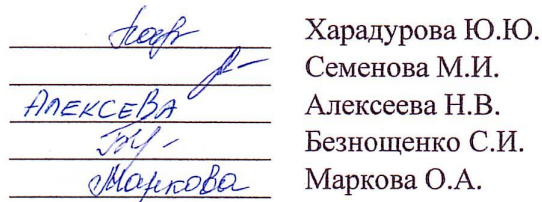 Харадурова Ю.Ю.
Семенова М.И.
АЛЕКСЕВА Алексеева Н.В.
Безнощенко С.И.
Маркова Маркова О.А.